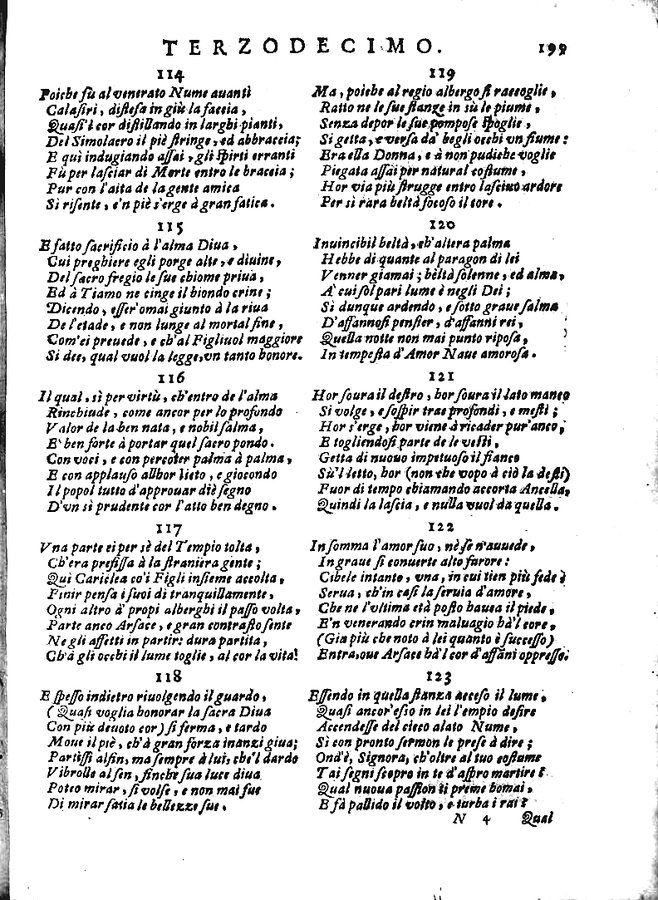 TERZODECIMO. 199
114
Poiche fù al venerato Nume avanti
Calasiri, distesa in giù la faccia,
Quasi'l cor distillando in larghi pianti,
Del Simolacro il piè stringe, ed abbraccia;
E quì indugiando assai, gli Spirti erranti
Fù per lasciar di Morte entro le braccia;
Pur con l'aita de la gente amica
Si risente, e'n piè s'erge à gran fatica.
115
E fatto sacrificio à l'alma Diua,
Cui preghiere egli porge alte, e diuine,
Del sacro fregio le sue chiome priua,
Ed à Tiamo ne cinge il biondo crine;
Dicendo, esser'omai giunto à la riua
De l'etade, e non lunge al mortal fine,
Com'ei preuede, e ch'al Figliuol maggiore
Si dee, qual vuol la legge, vn tanto honore.
116
Il qual, sì per virtù, ch'entro de l'alma
Rinchiude, come ancor per lo profondo
Valor de la ben nata, e nobil salma,
E' ben forte à portar quel sacro pondo.
Con voci, e con percoter palma à palma,
E con applauso allhor lieto, e giocondo
Il popol tutto d'approuar diè segno
D'vn sì prudente cor l'atto ben degno.
117
Vna parte ei per sè del Tempio tolta,
Ch'era prefissa à la straniera gente;
Quì Cariclea co'i Figli insieme accolta,
Finir pensa i suoi dì tranquillamente,
Ogni altro d' propi alberghi il passo volta,
Parte anco Arsace, e gran contrasto sente
Ne gli affetti in partir; dura partita,
Ch'à gli occhi il lume toglie, al cor la vita!
118
E spesso indietro riuolgendo il guardo,
(Quasi voglia honorar la sacra Diua
Con più deuoto cor) si ferma, e tardo
Moue il piè, ch'à gran forza inanzi giua;
Partissi alfin, ma sempre à lui, che'l dardo
Vibrolle al sen, finche sua luce diua
Poteo mirar, si volse, e non mai fue
Di mirar satia le bellezze sue.
119
Ma, poiche al regio albergo si raccoglie,
Ratto ne le sue stanze in sù le piume,
Senza depor le sue pompose spoglie,
Si getta, e versa da' begli occhi vn fiume:
Era ella Donna, e à non pudiche voglie
Piegata assai per natural costume,
Hor via più strugge entro lasciuo ardore
Per sì rara beltà focoso il core.
120
Inuincibil beltà, ch'altera palma
Hebbe di quante al paragon di lei
Venner giamai; beltà solenne, ed alma,
A' cui sol pari lume è negli Dei;
Sì dunque ardendo, e sotto graue salma
D'affannosi pensier, d'affanni rei,
Quella notte non mai punto riposa,
In tempesta d'Amor Naue amorosa.
121
Hor soura il destro, hor soura il lato manco
Si volge, e sospir trae profondi, e mesti;
Hor s'erge, hor viene à ricader pur'anco,
E togliendosi parte de le vesti,
Getta di nuouo impetuoso il fianco
Sù'l letto, hor (non che vopo à ciò la desti)
Fuor di tempo chiamando accorta Ancella,
Quindi la lascia, e nulla vuol da quella.
122
In somma l'amor suo, nè se n'auuede,
In graue si conuerte alto furore:
Cibele intanto, vna, in cui tien più fede
Serua, ch'in casi la seruia d'amore,
Che ne l'vltima età posto hauea il piede,
E'n venerando crin maluagio hà'l core,
(Già più che noto à lei quanto è successo)
Entra, oue Arsace hà'l cor d'affāni oppresso.
123
Essendo in quella stanza acceso il lume,
Quasi ancor'esso in lei l'empio desire
Accendesse del cieco alato Nume,
Sì con pronto sermon le prese à dire;
Ond'è, Signora, ch'oltre al tuo costume
Tai segni scopro in te d'aspro martire?
Qual nuoua passion ti preme homai,
E fà pallido il volto, e turba i rai?
N 4 Qual